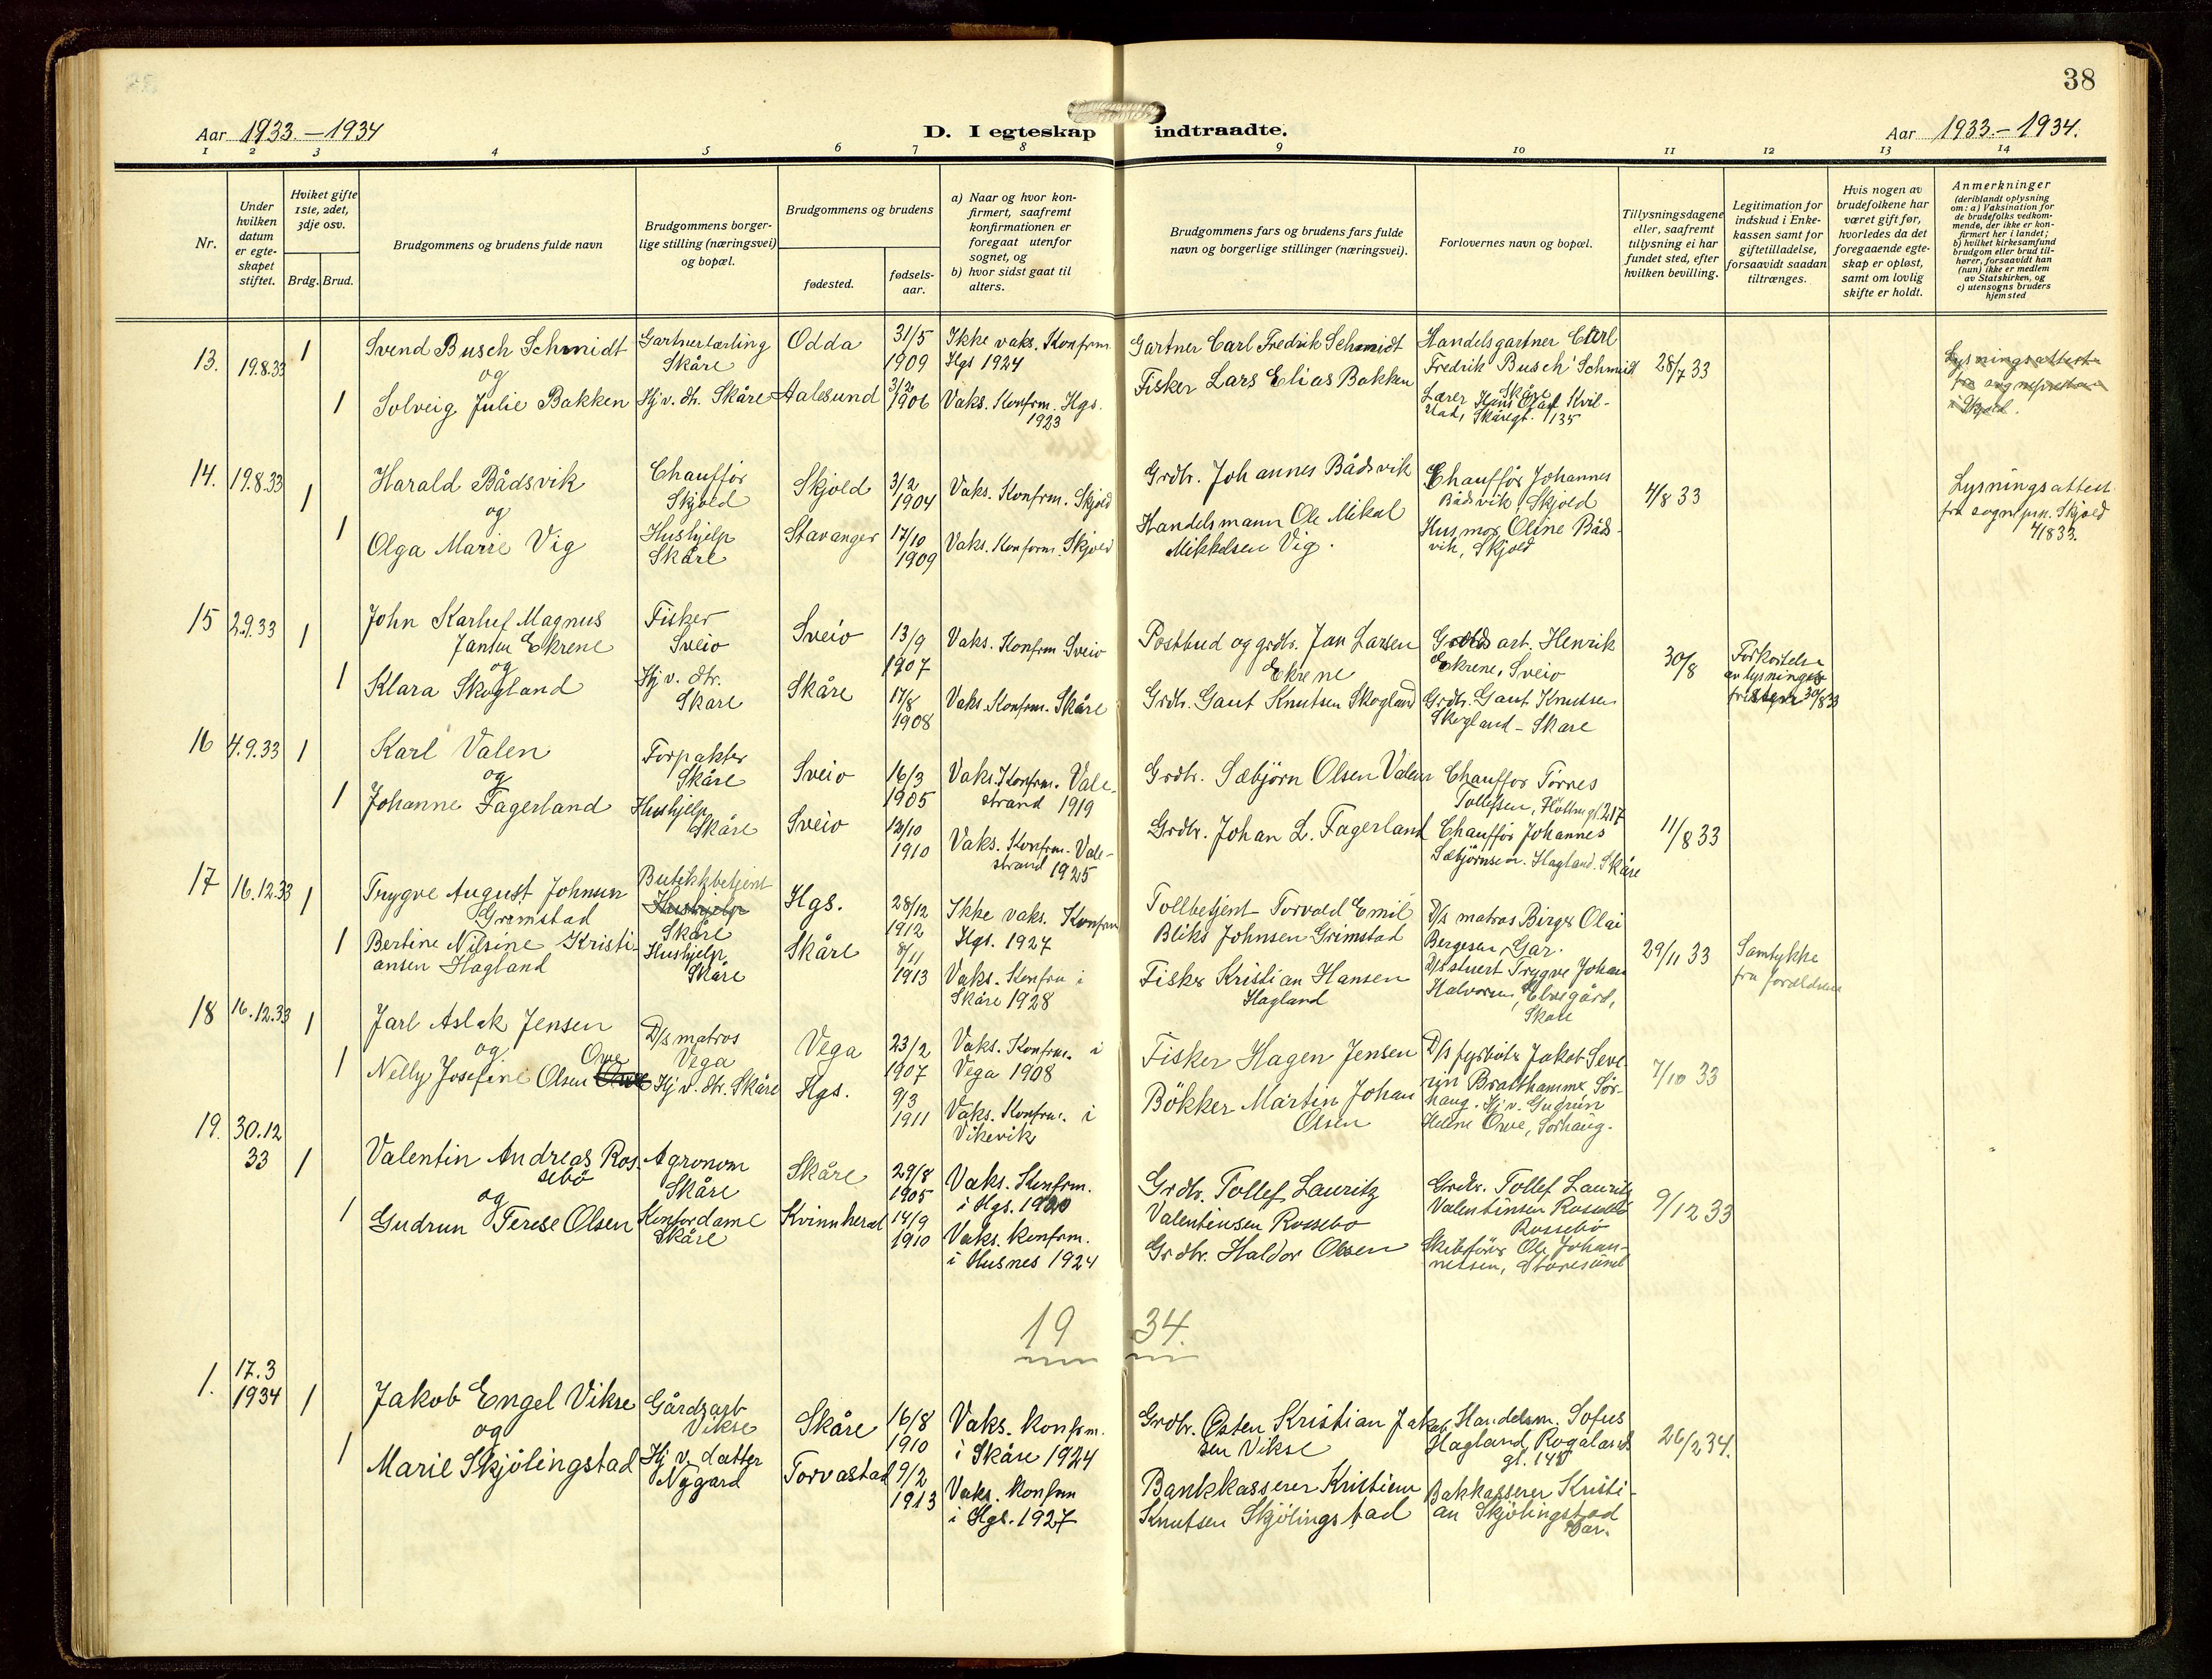 38
Aar 1933.–1934
D. I egteskap indtraadte.
Aar 1933.–1934.
1 2 3 4 5 6 7 8 9 10 11 12 13 14
Nr.
Under hvilken datum er egteskapet stiftet.
Hviket gifte 1ste, 2det, 3dje osv.
Brdg. Brud.
Brudgommens og brudens fulde navn
Brudgommens borgerlige stilling (næringsvei) og bopæl.
Brudgommens og brudens
fødested.
fødselsaar.
a) Naar og hvor konfirmert, saafremt konfirmationen er foregaat utenfor sognet, og
b) hvor sidst gaat til alters.
Brudgommens fars og brudens fars fulde navn og borgerlige stillinger (næringsvei).
Forlovernes navn og bopæl.
Tillysningsdagene eller, saafremt tillysning ei har fundet sted, efter hvilken bevilling.
Legitimation for indskud i Enkekassen samt for giftetilladelse, forsaavidt saadan tiltrænges.
Hvis nogen av brudefolkene har været gift før, hvorledes da det foregaaende egteskap er opløst, samt om lovlig skifte er holdt.
Anmerkninger
(deriblandt oplysning om: a) Vaksination for de brudefolks vedkommende, der ikke er konfirmert her i landet;
b) hvilket kirkesamfund brudgom eller brud tilhører, forsaavidt han (hun) ikke er medlem av Statskirken, og
c) utensogns bruders hjemsted
13. 19.8.33 1
Svend Busch Schmidt
og
1 Solveig Julie Bakken
Gartnerlærling
Skåre
Hj v. dtr. Skåre
Odda
Aalesund
31/5
1909
3/2
1906
Ikke vaks. Konfrm
Hgs 1924
Vaks. Konfrm. Hgs.
1923
Gartner Carl Fredrik Schmidt
Fisker Lars Elias Bakken
Handelsgartner Carl
Fredrik Busch Schmidt
Skåre
Lærer Hans Olaf Kvil-
stad, Skåregt. 135
28/7 33
Lysningsattest
fra sognepresten
i Skjold.
14. 19.8.33 1
Harald Bådsvik
og
1 Olga Marie Vig
Chauffør
Skjold
Hushjelp
Skåre
Skjold
Stavanger
3/2
1904
17/10
1909
Vaks. Konfrm. Skjold
Vaks. Konfrm. Skjold
Grdbr. Johannes Bådsvik
Handelsmann Ole Mikal
Mikkelsen Vig.
Chauffør Johannes
Bådsvik, Skjold
Husmor Oline Båds-
vik, Skjold
4/8 33
Lysningsattest
fra sognepr. Skjold
4/8 33.
15 2.9.33 1
John Karluf Magnus
Jansen Ekrene
og
1 Klara Skogland
Fisker
Sveio
Hj v. dtr.
Skåre
Sveio
Skåre
13/9
1907
17/8
1908
Vaks. Konfrm Sveio
Vaks. Konfrm. Skåre
Postbud og grdbr. Jan Larsen
Ekrene
Grdbr. Gaut Knutsen Skogland
Grdbr. Henrik
Ekrene, Sveio
Grdbr. Gaut Knutsen
Skogland – Skåre
30/8
Forkortelse
av lysnings
fristen 30/8 33
16 4.9.33 1
Karl Valen
og
1 Johanne Fagerland
Forpakter
Skåre
Hushjelp
Skåre
Sveio
Sveio
16/3
1905
13/10
1910
Vaks. Konfrm. Vale-
strand 1919
Vaks. Konfrm. Vale-
strand 1925
Grdbr. Sæbjørn Olsen Valen
Grdbr. Johan L. Fagerland
Chauffør Tørres
Tollefsen, 217
Chauffør Johannes
Sæbjørnsen. Hagland. Skåre
11/8 33
17 16.12.33 1
Trygve August Johnsen
Grimstad
1 Bertine Nilsine Kristi-
ansen Hagland
Butikkbetjent
Hushjelp
Skåre
Hushjelp
Skåre
Hgs.
Skåre
28/12
1912
8/11
1913
Ikke vaks. Konfrm
Hgs. 1927
Vaks. Konfrm i
Skåre 1928
Tollbetjent Torvald Emil
Bliks Johnsen Grimstad
Fisker Kristian Hansen
Hagland
D/s matros Birger Olai
Bergesen, Gar.
D/s stuert Trygve Johan
Halvorsen, Elvegård,
Skåre
29/11 33
Samtykke
fra foreldrene
18 16.12.33 1
Jarl Aslak Jensen
og
Orve
1 Nelly Josefine Olsen
D/s matros
Vega
Hj v. dtr. Skåre
Vega
Hgs.
23/2
1907
9/3
1911
Vaks. Konfrm. i
Vega 1908
Vaks. Konfrm. i
Vikevik
Fisker Hagen Jensen
Bøkker Martin Johan
Olsen
D/s fyrbøter Jakob Seve-
rin Bratthammer, Sør-
haug. Hj v. Gudrun
Helene Orve, Sørhaug.
7/10 33
19. 30.12
33 1
Valentin Andreas Ros-
sebø
og
1 Gudrun Terese Olsen
Agronom
Skåre
Kontordame
Skåre
Skåre
Kvinnherad
29/8
1905
14/9
1910
Vaks. Konfrm.
i Hgs. 1920
Vaks. konfrm.
i Husnes 1924
Grdbr. Tollef Lauritz
Valentinsen Rossebø
Grdbr. Haldor Olsen
Grdbr. Tollef Lauritz
Valentinsen Rossebø
Rossebø
Skibsfører Ole Johan-
nessen, Storesund
9/12 33
19 34.
1. 17.3
1934 1
Jakob Engel Vikse
og
1 Marie Skjölingstad
Gårdsarb
Vikse
Hj v. datter
Nygård
Skåre
Torvastad
16/8
1910
9/2
1913
Vaks. konfrm.
i Skåre 1924
Vaks. konfrm
i Hgs. 1927
Grdbr. Østen Kristian Jakob-
sen Vikse
Bankkasserer Kristian
Knutsen Skjölingstad
Handelsm. Sofus
Hagland, Rogalands
gt. 140
Bakkasserer Kristi-
an Skjölingstad
Gar.
26/2 34.